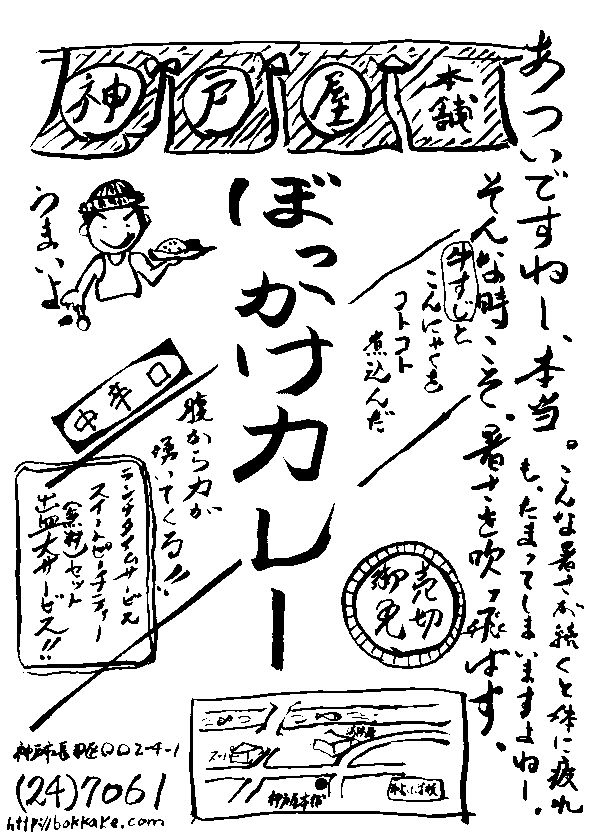 神戸屋
本舗
あついですねー、本当。
こんな暑さが続くと体に疲れ
も、たまってしまいますよねー。
そんな時こそ、暑さを吹っ飛ばす、
ぼっかけカレー
牛すじと
こんにゃくを
コトコト
煮込んだ
うまいよ
中辛口
腹から力が
湧いてくる!!
ランチタイムサービス
スイートピーチティー
(無料)セット
出血大サービス!!
売切
御免
神戸屋本舗
神戸市長田区〇〇2-4-1
(24)7061
http://bokkake.com